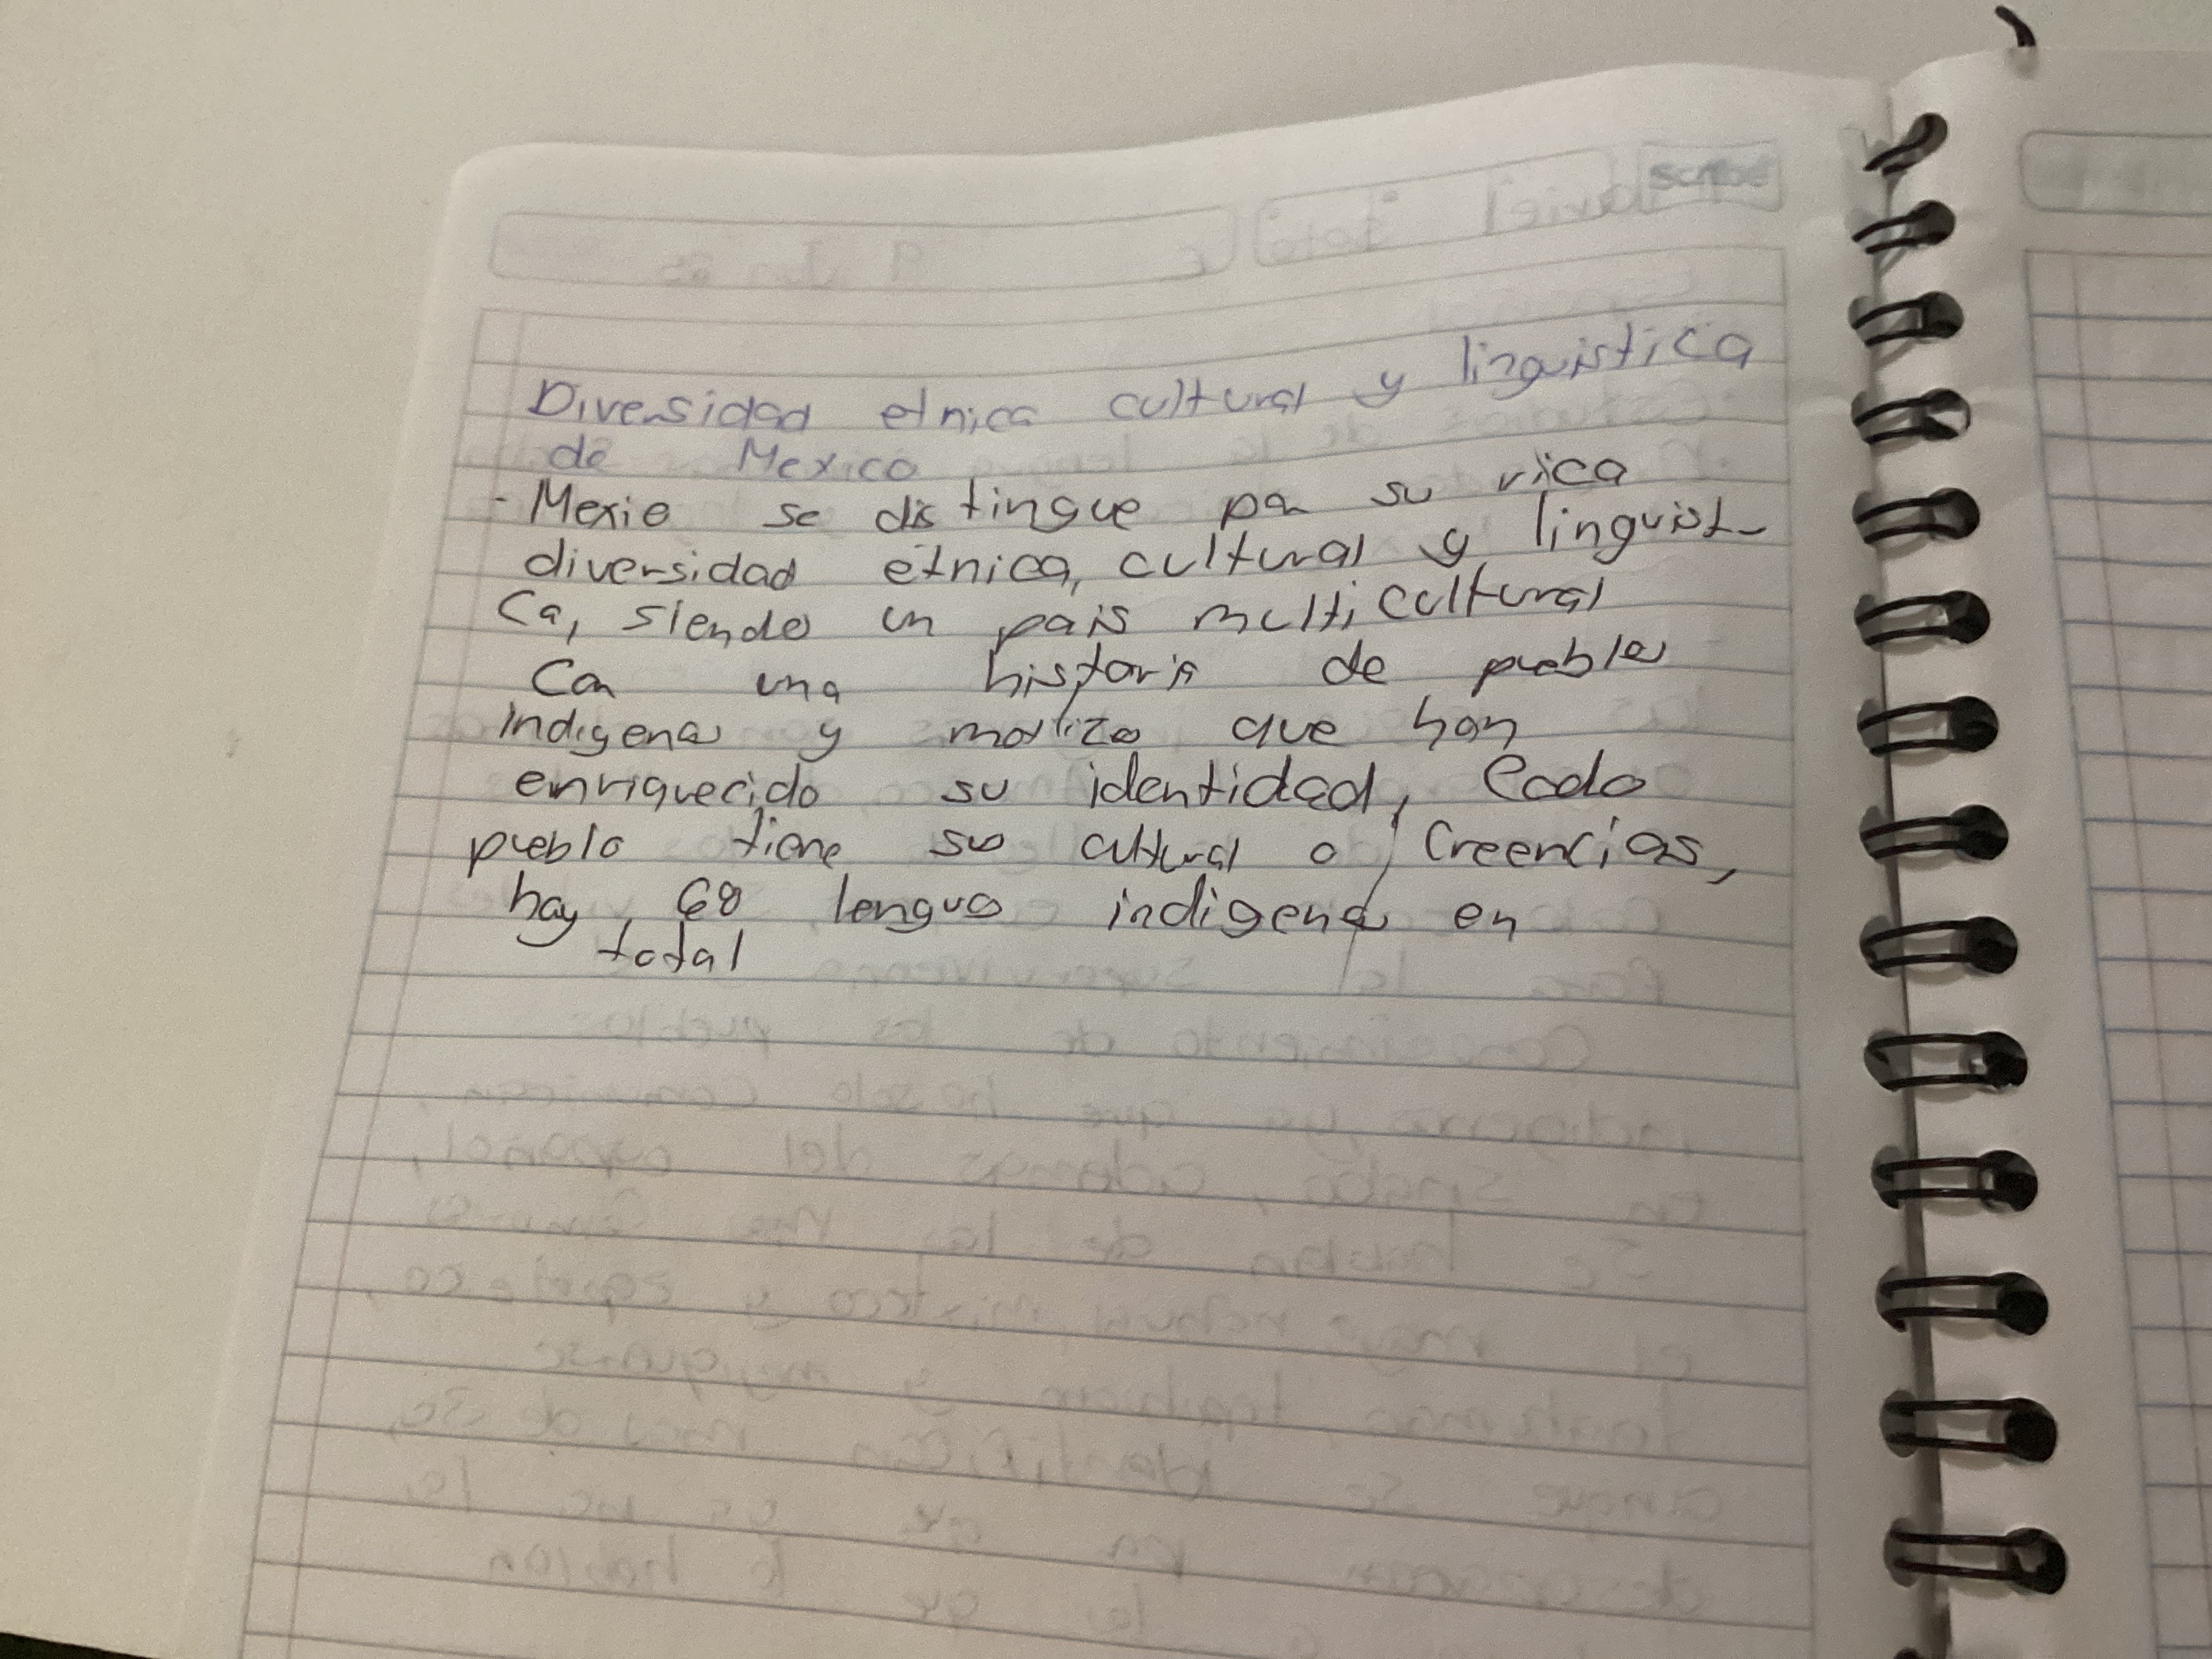 scribe
Diversidad etnica cultural y linguistica
de Mexico
- Mexio se distingue por su rica
diversidad etnica, cultural y linguist-
ca, siendo un pais multicultural
Con una historia de pueblos
indigenas y que han
enriquecido su identidad, Cado
pueblo tiene su cultural o Creencias,
hay, 68 lenguas indigenas en
total